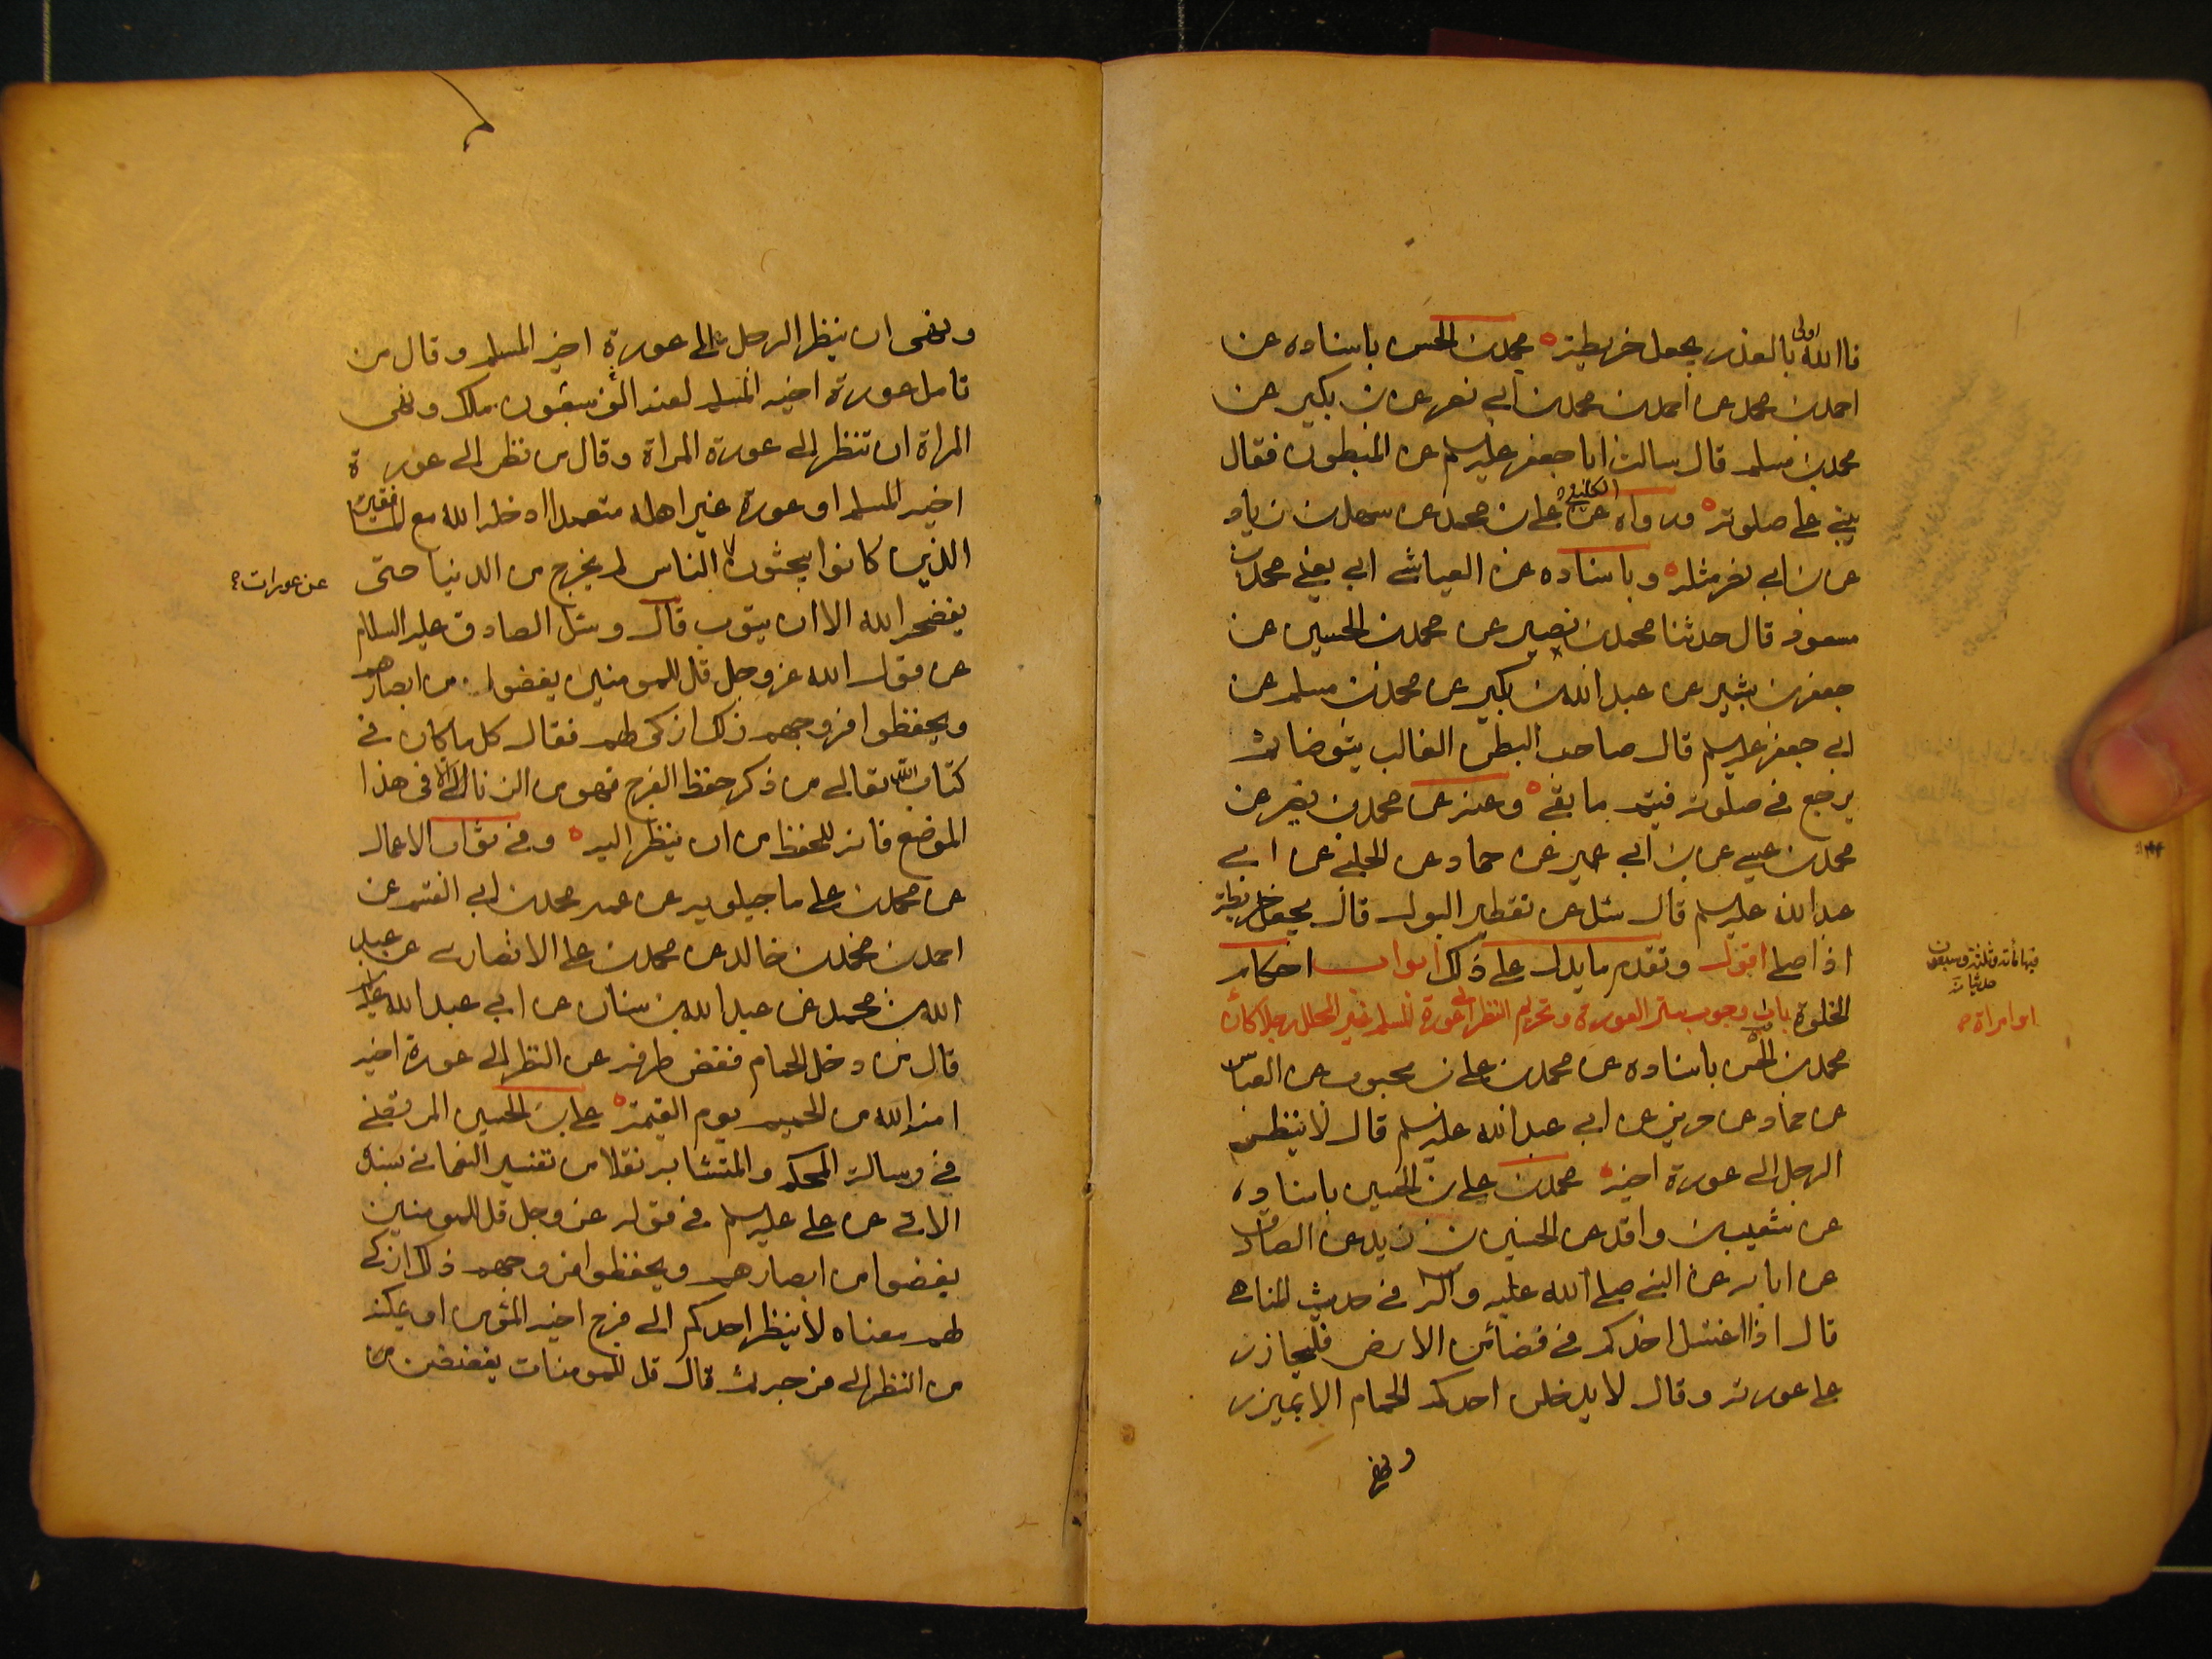 فاالله اولى بالعذر يجعل خريطة محمد بن الحسن باسناده عن
احمد بن محمد عن احمد بن محمد بن ابي نصر عن بن بكير عن
محمد بن مسلم قال سالت ابا جعفر عليه السلم عن المبطون فقال
يبني على صلوته ورواه الكليني عن علي بن محمد عن سهل بن زياد
عن بن ابي نصر مثله وباسناده عن العياشي ابي يعني محمد بن
مسعود قال حدثنا محمد بن نصير عن محمد بن الحسين عن
جعفر بن بشير عن عبد الله بن بكير عن محمد بن مسلم عن
ابي جعفر عليه السلم قال صاحب البطن الغالب يتوضا ثم
يرجع في صلوته فيتم ما بقي وعنه عن محمد بن نصير عن
محمد بن عيسى عن بن ابي عمير عن حماد عن الحلبي عن ابي
عبد الله عليه السلم قال سئل عن تقطير البول قال يجعل خريطة
اذا صلى اقول وتقدم ما يدل على ذلك ابواب احكام
الخلوة باب وجوب ستر العورة وتحريم النظر الى عورة المسلم غير المحلل رجلا كان
محمد بن الحسن باسناده عن محمد بن علي بن محبوب عن العباس
عن حماد عن حريز عن ابي عبد الله عليه السلم قال لا ينظر
الرجل الى عورة اخيه محمد بن علي بن الحسين باسناده
عن شعيب بن واقد عن الحسين بن زيد عن الصادق
عن ابائه عن النبي صلى الله عليه واله في حديث المناهي
قال اذا اغتسل احدكم في فضاء من الارض فليحاذر
على عورته وقال لا يدخلن احدكم الحمام الا بميزر
ونهى
او امراة
ونهى ان ينظر الرجل الى عورة اخيه المسلم وقال من
تامل عورة اخيه المسلم لعنه الف سبعون ملك ونهى
المراة ان تنظر الى عورة المراة وقال من نظر الى عورة
اخيه المسلم او عورة غير اهله متعمدا ادخله الله مع المنافقين
الذين كانوا يبحثون الناس لم يخرج من الدنيا حتى
عن عورات
يفضحه الله الا ان يتوب قال وسئل الصادق عليه السلام
عن قول الله عز وجل قل للمومنين يغضوا من ابصارهم
ويحفظوا فروجهم ذلك ازكى لهم فقال كل ما كان في
كتاب الله تعالى من ذكر حفظ الفرج فهو من الزنا الا في هذا
الموضع فانه للحفظ من ان ينظر اليه وفي ثواب الاعمال
عن محمد بن علي ماجيلويه عن عمه محمد بن ابي القسم عن
احمد بن محمد بن خالد عن محمد بن علي الانصاري عن عبد
الله بن محمد عن عبد الله بن سنان عن ابي عبد الله عليه
قال من دخل الحمام فغض طرفه عن النظر الى عورة اخيه
امنه الله من الحميم يوم القيمة علي بن الحسين المرتضى
في رسالة المحكم والمتشابه نقلا من تفسير النعماني بسنده
الاتي عن علي عليه السلم في قوله عز وجل قل للمومنين
يغضوا من ابصارهم ويحفظوا فروجهم ذلك ازكى
لهم معناه لا ينظر احدكم الى فرج اخيه المومن او يمكنه
من النظر الى فرجه ثم قال قل للمومنات يغضضن من